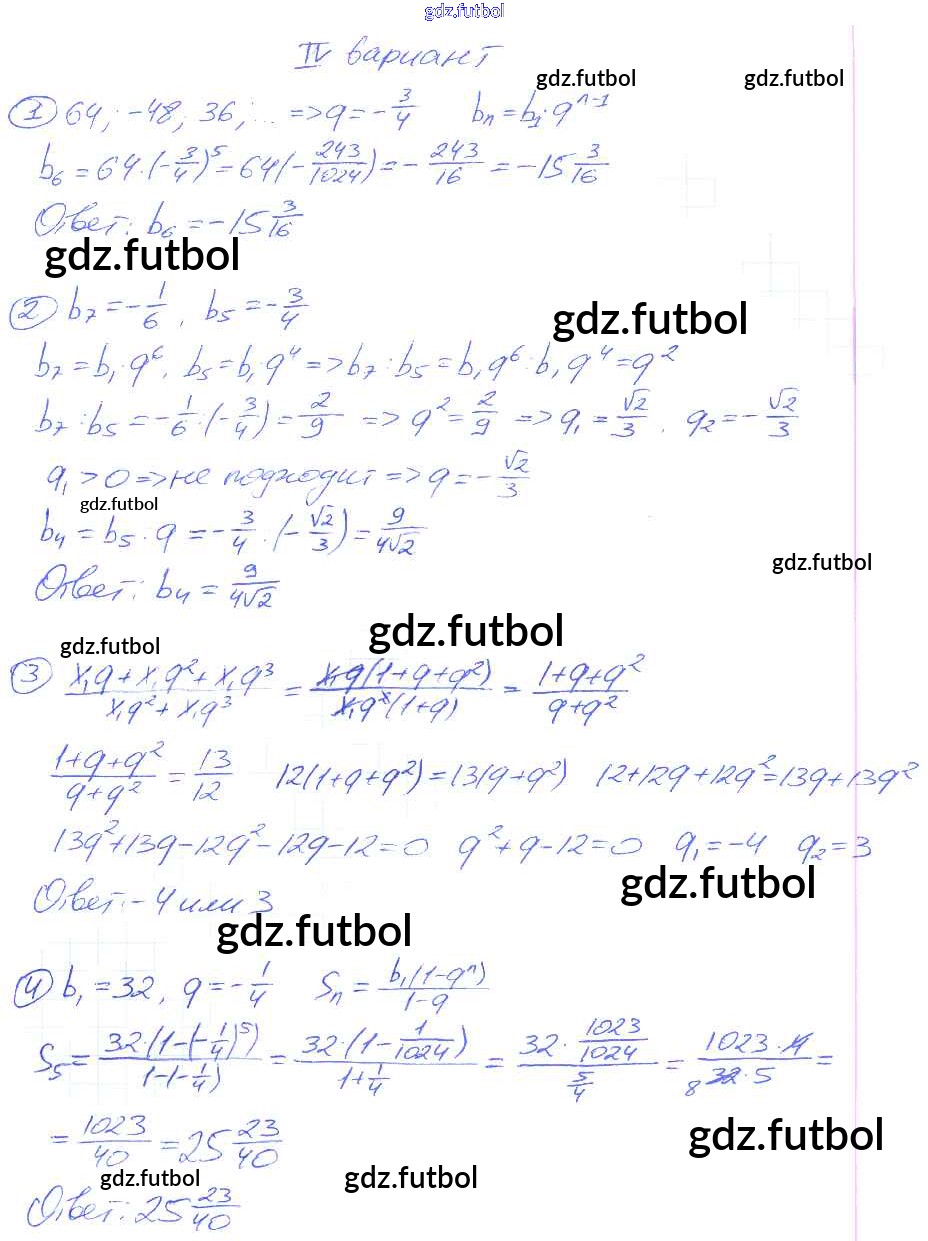 gdz.futbol
IV вариант
gdz.futbol gdz.futbol
① 64; -48; 36; ... => q = -3/4 bₙ = b₁·qⁿ⁻¹
b₆ = 64·(-3/4)⁵ = 64(-243/1024) = -243/16 = -15 3/16
Ответ: b₆ = -15 3/16
gdz.futbol
② b₇ = -1/6, b₅ = -3/4
gdz.futbol
b₇ = b₁·q⁶, b₅ = b₁·q⁴ => b₇:b₅ = b₁q⁶:b₁q⁴ = q²
b₇:b₅ = -1/6:(-3/4) = 2/9 => q² = 2/9 => q₁ = √2/3, q₂ = -√2/3
q₁ > 0 => не подходит => q = -√2/3
gdz.futbol
b₄ = b₅·q = -3/4·(-√2/3) = 9/4√2
gdz.futbol
Ответ: b₄ = 9/4√2
gdz.futbol
gdz.futbol
③ (x₁q + x₁q² + x₁q³)/(x₁q² + x₁q³) = x₁q(1+q+q²)/x₁q²(1+q) = (1+q+q²)/(q+q²)
(1+q+q²)/(q+q²) = 13/12 12(1+q+q²) = 13(q+q²) 12+12q+12q² = 13q+13q²
13q²+13q-12q²-12q-12=0 q²+q-12=0 q₁=-4 q₂=3
gdz.futbol
Ответ: -4 или 3
gdz.futbol
④ b₁ = 32, q = -1/4 Sₙ = b₁(1-qⁿ)/1-q
S₅ = 32·(1-(-1/4)⁵)/1-(-1/4) = 32·(1-1/1024)/1+1/4 = 32·1023/1024/5/4 = 1023·4/8 32·5 =
= 1023/40 = 25 23/40
gdz.futbol
gdz.futbol gdz.futbol
Ответ: 25 23/40